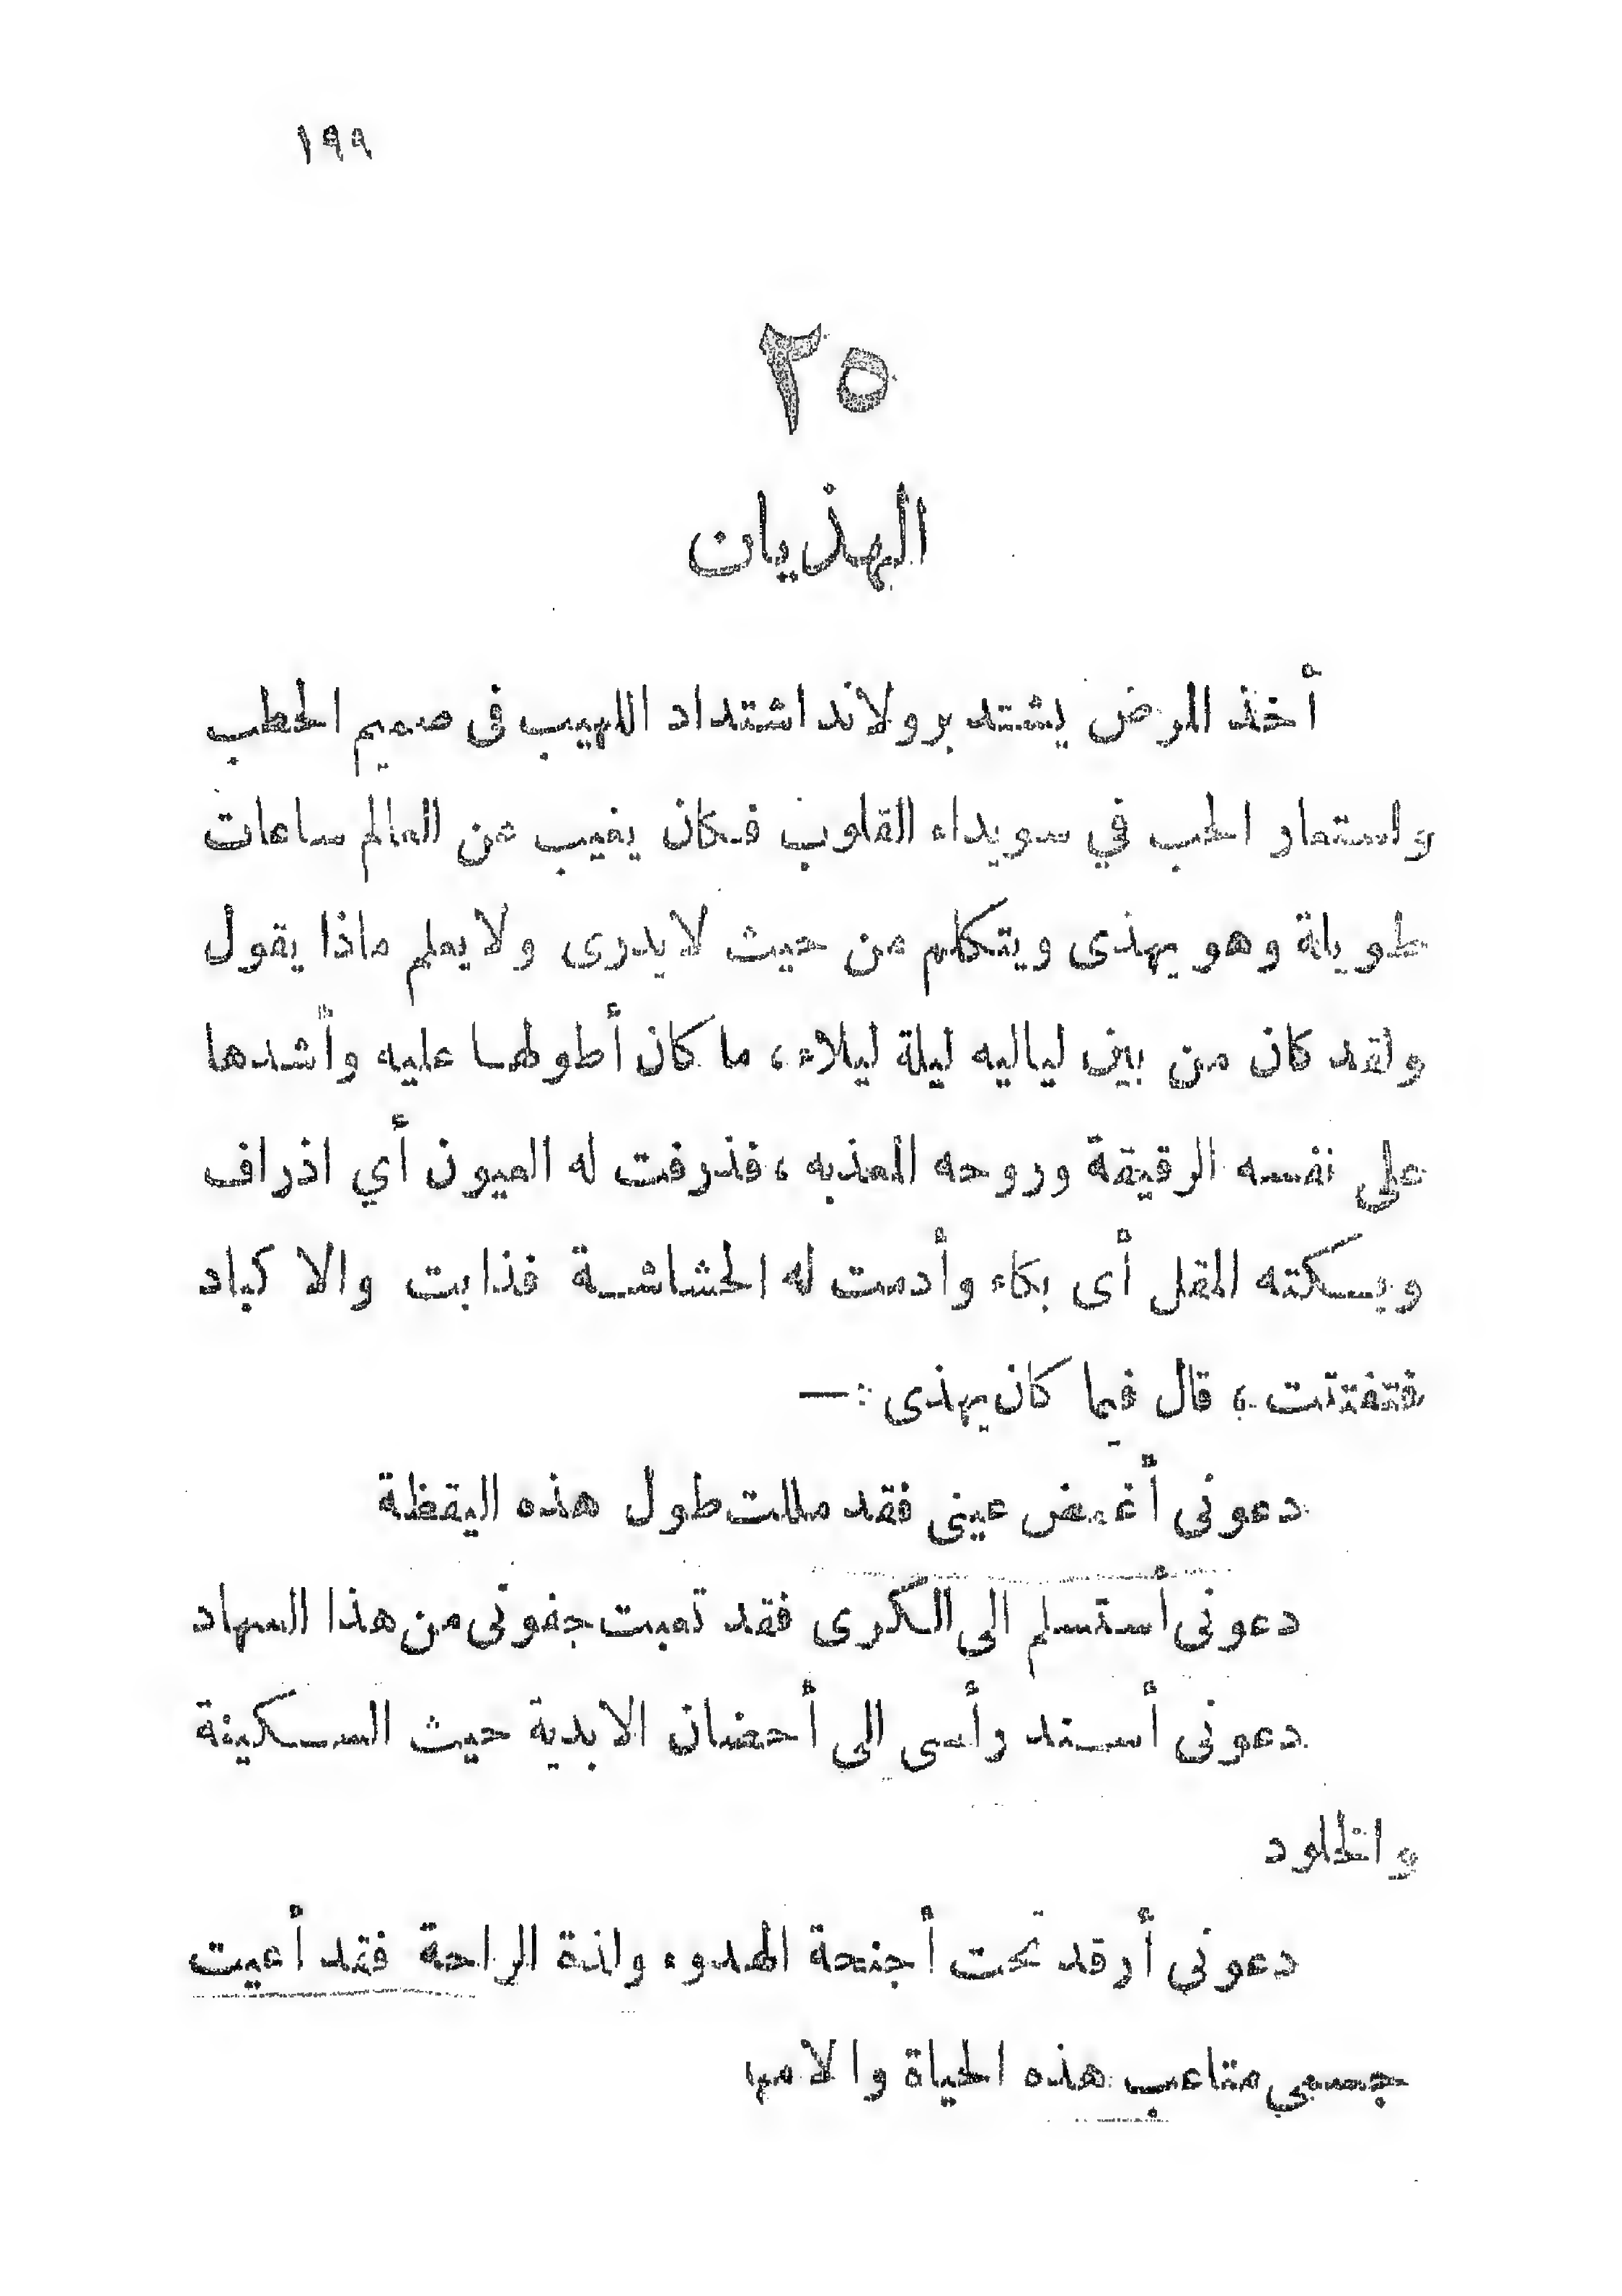 ١٩٩
٢٥
الهذيان
أخذ المرض يشتد برولاند اشتداد اللهيب فى صميم الحطب
واستعار الحب في سويداء القلوب فكان يغيب عن العالم ساعات
طويلة وهو يهذى ويتكلم من حيث لا يدرى ولا يعلم ماذا يقول
ولقد كان من بين لياليه ليلة ليلاء، ما كان أطولها عليه وأشدها
على نفسه الرقيقة وروحه المعذبه، فذرفت له العيون أي اذراف
وبكته المقل أى بكاء وأدمت له الحشاشة فذابت والاكباد
فتفتتت، قال فيما كان يهذى :—
دعونى أغمض عينى فقد مللت طول هذه اليقظة
دعونى أستسلم الى الكرى فقد تعبت جفونى من هذا السهاد
دعونى أسند رأسى الى أحضان الابدية حيث السكينة
والخلود
دعونى أرقد تحت أجنحة الهدوء ولذة الراحة فقد أعيت
جسمي متاعب هذه الحياة والامها